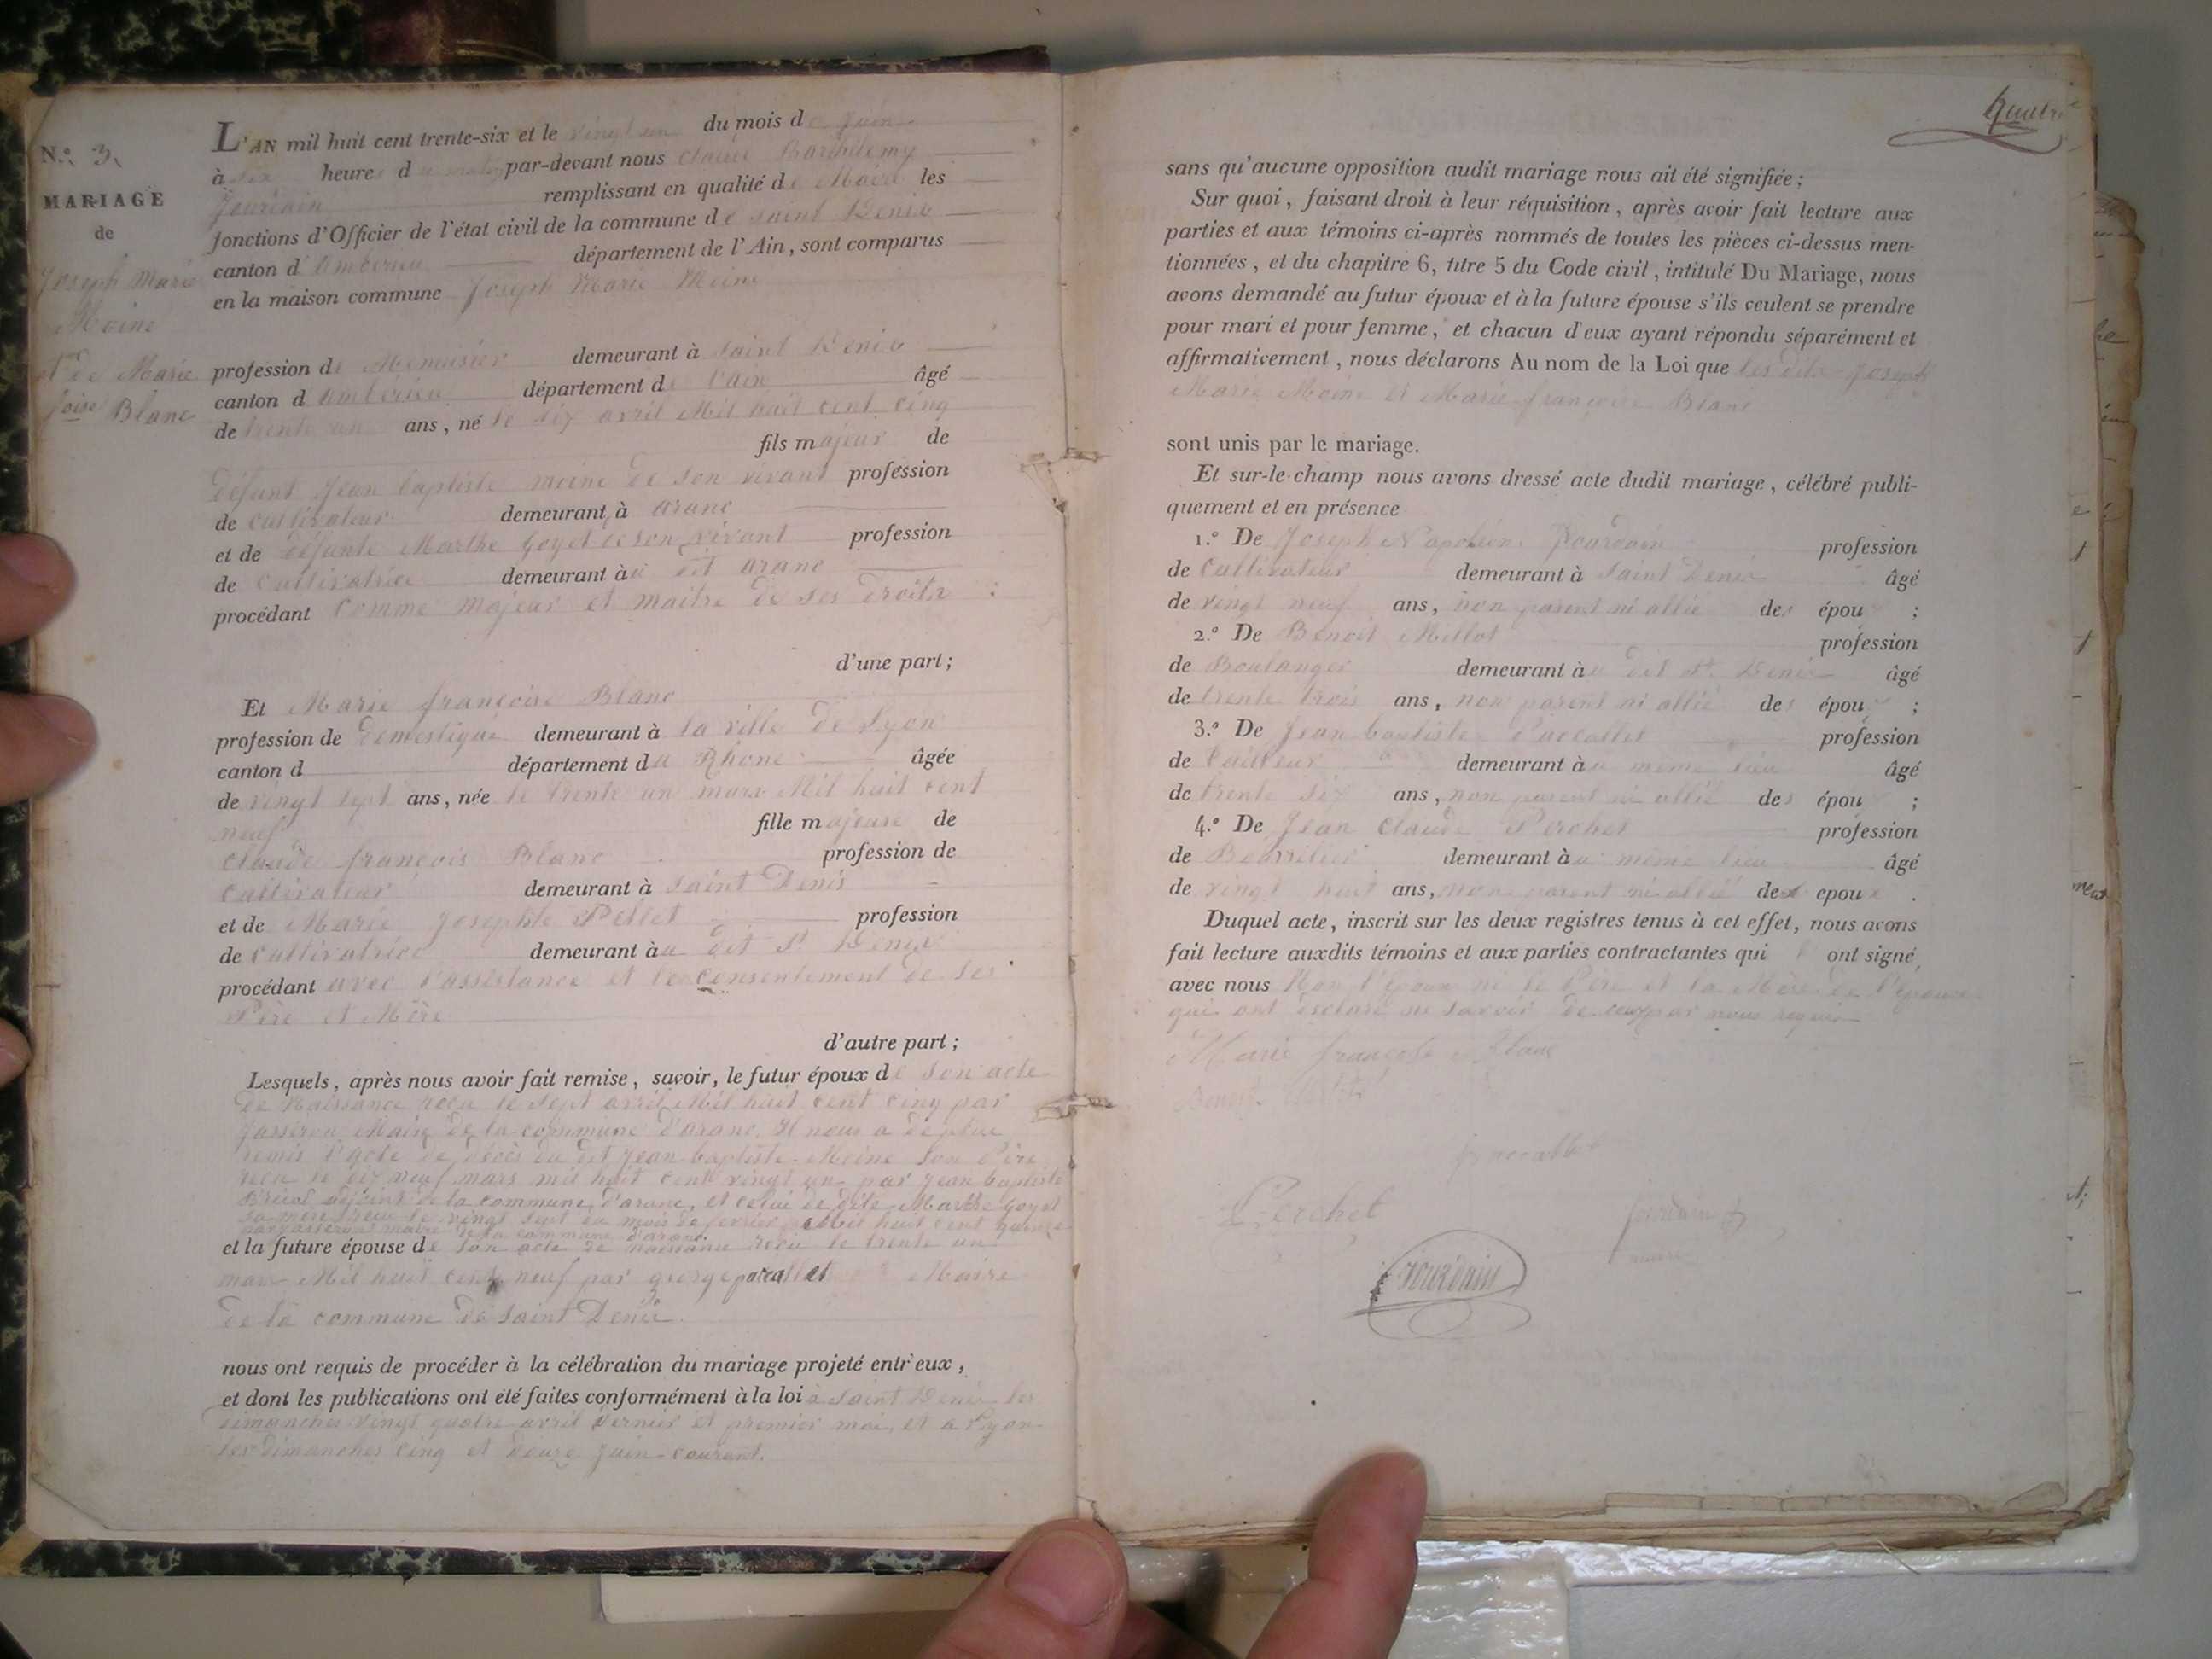 N.º 3.
MARIAGE
de
Joseph Marie
Moine
et de Marie
foise Blanc
L'AN mil huit cent trente-six et le vingt un du mois de juin
à six heures du matin par-devant nous Claude Barthelemy
Jourdain remplissant en qualité de Maire les
fonctions d'Officier de l'état civil de la commune de Saint Denis
canton d'ambérieu département de l'Ain, sont comparus
en la maison commune Joseph Marie Moine
profession de Menuisier demeurant à Saint Denis
canton d'ambérieu département de l'ain âgé
de trente un ans, né le six avril Mil huit cent cinq
fils majeur de
défunt Jean baptiste moine de son vivant profession
de cultivateur demeurant à aranc
et de défunte Marthe Goyet de son vivant profession
de Cultivatrice demeurant au dit aranc
procédant comme majeur et maitre de ses droits
d'une part;
Et Marie françoise Blanc
profession de domestique demeurant à la ville de Lyon
canton d département du Rhône âgée
de vingt sept ans, née le trente un mars Mil huit cent
neuf fille majeure de
Claude françois Blanc profession de
cultivateur demeurant à Saint Denis
et de Marie Josephte Pellet profession
de Cultivatrice demeurant au dit St Denis
procédant avec l'assistance et le consentement de ses
Père et Mère
d'autre part;
Lesquels, après nous avoir fait remise, savoir, le futur époux de son acte
de Naissance reçu le sept avril Mil huit cent cinq par
Jasseron Maire de la commune d'aranc. Il nous a de plus
remis l'acte de décès du dit Jean baptiste Moine son Père
reçu le dix neuf mars mil huit cent vingt un par Jean baptiste
adjoint de la commune d'aranc, et celui de dite Marthe Goyet
sa mère reçu le vingt sept du mois de fevrier Mil huit cent quinze
par Jasseron maire de la commune d'aranc.
et la future épouse de son acte de naissance reçu le trente un
mars Mil huit cent neuf par george pacallet Maire
de la commune de Saint Denis.
nous ont requis de procéder à la célébration du mariage projeté entr'eux,
et dont les publications ont été faites conformément à la loi à Saint Denis les
dimanches vingt quatre avril dernier et premier mai, et a Lyon
les dimanches cinq et douze juin courant.
Quatre
sans qu'aucune opposition audit mariage nous ait été signifiée;
Sur quoi, faisant droit à leur réquisition, après avoir fait lecture aux
parties et aux témoins ci-après nommés de toutes les pièces ci-dessus men-
tionnées, et du chapitre 6, titre 5 du Code civil, intitulé Du Mariage, nous
avons demandé au futur époux et à la future épouse s'ils veulent se prendre
pour mari et pour femme, et chacun d'eux ayant répondu séparément et
affirmativement, nous déclarons Au nom de la Loi que les dits Joseph
Marie Moine et Marie françoise Blanc
sont unis par le mariage.
Et sur-le-champ nous avons dressé acte dudit mariage, célébré publi-
quement et en présence
1.º De Joseph Napoléon Jourdain profession
de Cultivateur demeurant à Saint Denis âgé
de vingt neuf ans, non parent ni allié des épou ;
2.º De Benoit Millot profession
de Boulanger demeurant au dit St Denis âgé
de trente trois ans, non parent ni allié des époux ;
3.º De Jean baptiste Paccallet profession
de tailleur demeurant au même lieu âgé
de trente six ans, non parent ni allié des épou ;
4.º De Jean Claude Perchet profession
de Bourrelier demeurant au même lieu âgé
de vingt huit ans, non parent ni allié des epoux .
Duquel acte, inscrit sur les deux registres tenus à cet effet, nous avons
fait lecture auxdits témoins et aux parties contractantes qui ont signé,
avec nous Non l'époux ni le Père et la Mère de l'épouse
qui ont déclaré ne savoir de ceux par nous requis
Marie françoise Blanc
Benoit
paccallet
Perchet
jourdain
maire
jourdain